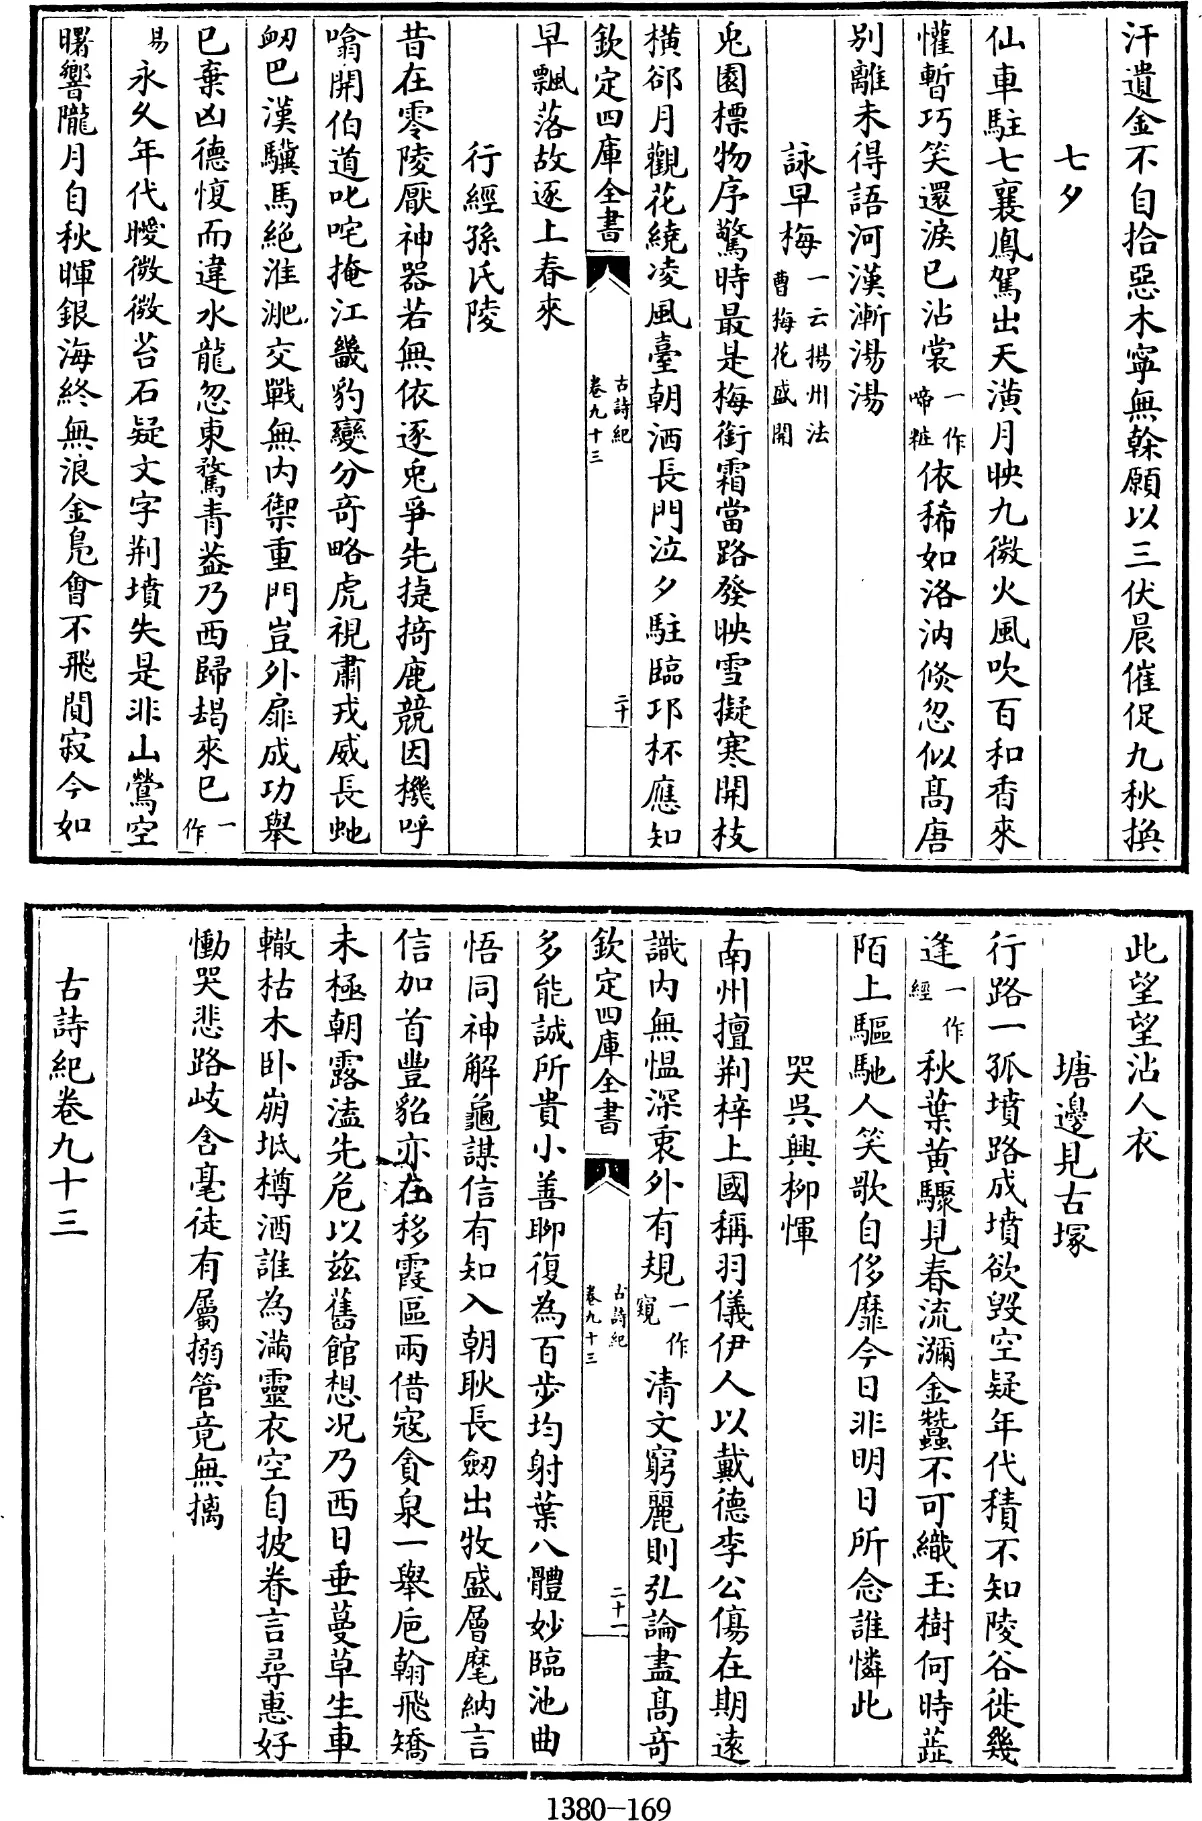 汗遺金不自拾惡木寧無榦願以三伏晨催促九秋換
七夕
仙車駐七襄鳳駕出天潢月映九微火風吹百和香來
懽暫巧笑還淚已沾裳一作啼粧依稀如洛汭倐忽似高唐
別離未得語河漢漸湯湯
詠早梅一云揚州法曹梅花盛開
兎園標物序驚時最是梅銜霜當路發映雪擬寒開枝
橫郤月觀花繞凌風臺朝洒長門泣夕駐臨邛杯應知
欽定四庫全書 古詩紀卷九十三 二十
早飄落故逐上春來
行經孫氏陵
昔在零陵厭神器若無依逐兎爭先捷掎鹿競因機呼
噏開伯道叱咤掩江畿豹變分奇略虎視肅戎威長虵
衂巴漢驥馬絶淮淝交戰無内禦重門豈外扉成功舉
已棄凶德愎而違水龍忽東騖青葢乃西歸朅來已一作
易永久年代曖微微苔石疑文字荆墳失是非山鶯空
曙響隴月自秋暉銀海終無浪金鳬會不飛閴寂今如
此望望沾人衣
塘邊見古塚
行路一孤墳路成墳欲毁空疑年代積不知陵谷徙幾
逢一作經秋葉黄驟見春流瀰金蠶不可織玉樹何時蘂
陌上驅馳人笑歌自侈靡今日非明日所念誰憐此
哭吳興柳惲
南州擅荆梓上國稱羽儀伊人以戴德李公傷在期逺
識内無愠深衷外有規一作窺清文窮麗則弘論盡髙奇
欽定四庫全書 古詩紀卷九十三 二十一
多能誠所貴小善聊復為百步均射葉八體妙臨池曲
悟同神解龜謀信有知入朝耿長劔出牧盛層麾納言
信加首豐貂亦在移霞區兩借寇貪泉一舉卮翰飛矯
未極朝露溘先危以兹舊館想况乃西日垂蔓草生車
轍枯木卧崩坻樽酒誰為滿靈衣空自披眷言尋惠好
慟哭悲路岐含毫徒有屬搦管竟無摛
古詩紀卷九十三
1380-169